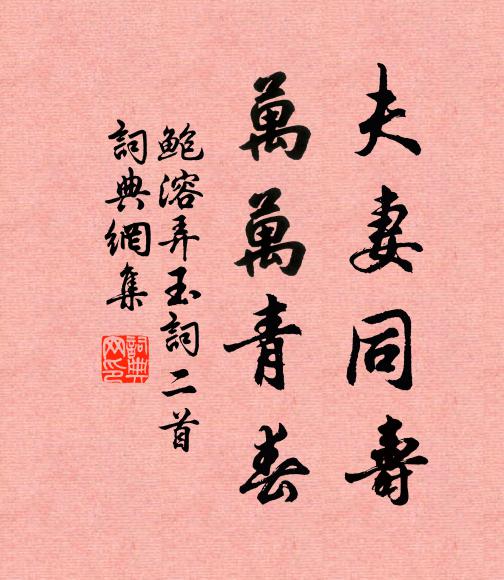 夫妻同壽
萬萬青春
鮑溶弄玉詞二首
詞典網集
詞典
网印